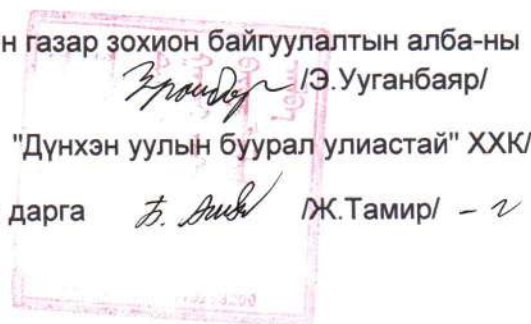 н газар зохион байгуулалтын алба-ны
/Э.Ууганбаяр/
"Дүнхэн уулын буурал улиастай" ХХК/
дарга /Ж.Тамир/